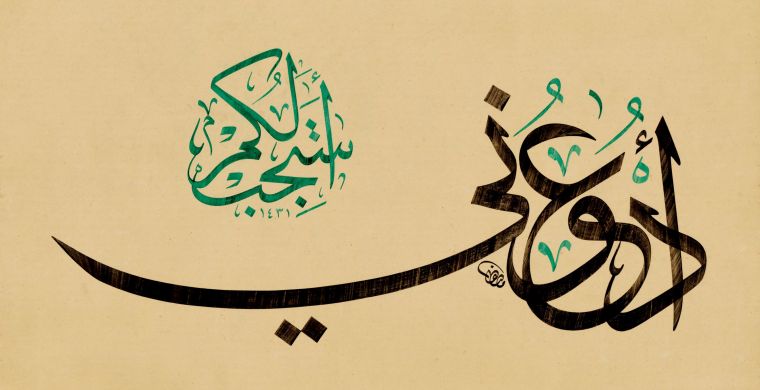 أُدْعُونِي
أَسْتَجِبْ لَكُمْ
١٤٣١